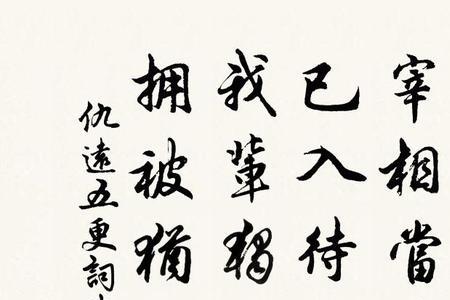 宰相當
已入待
我輩獨
擁被猶
仇遠五更詞